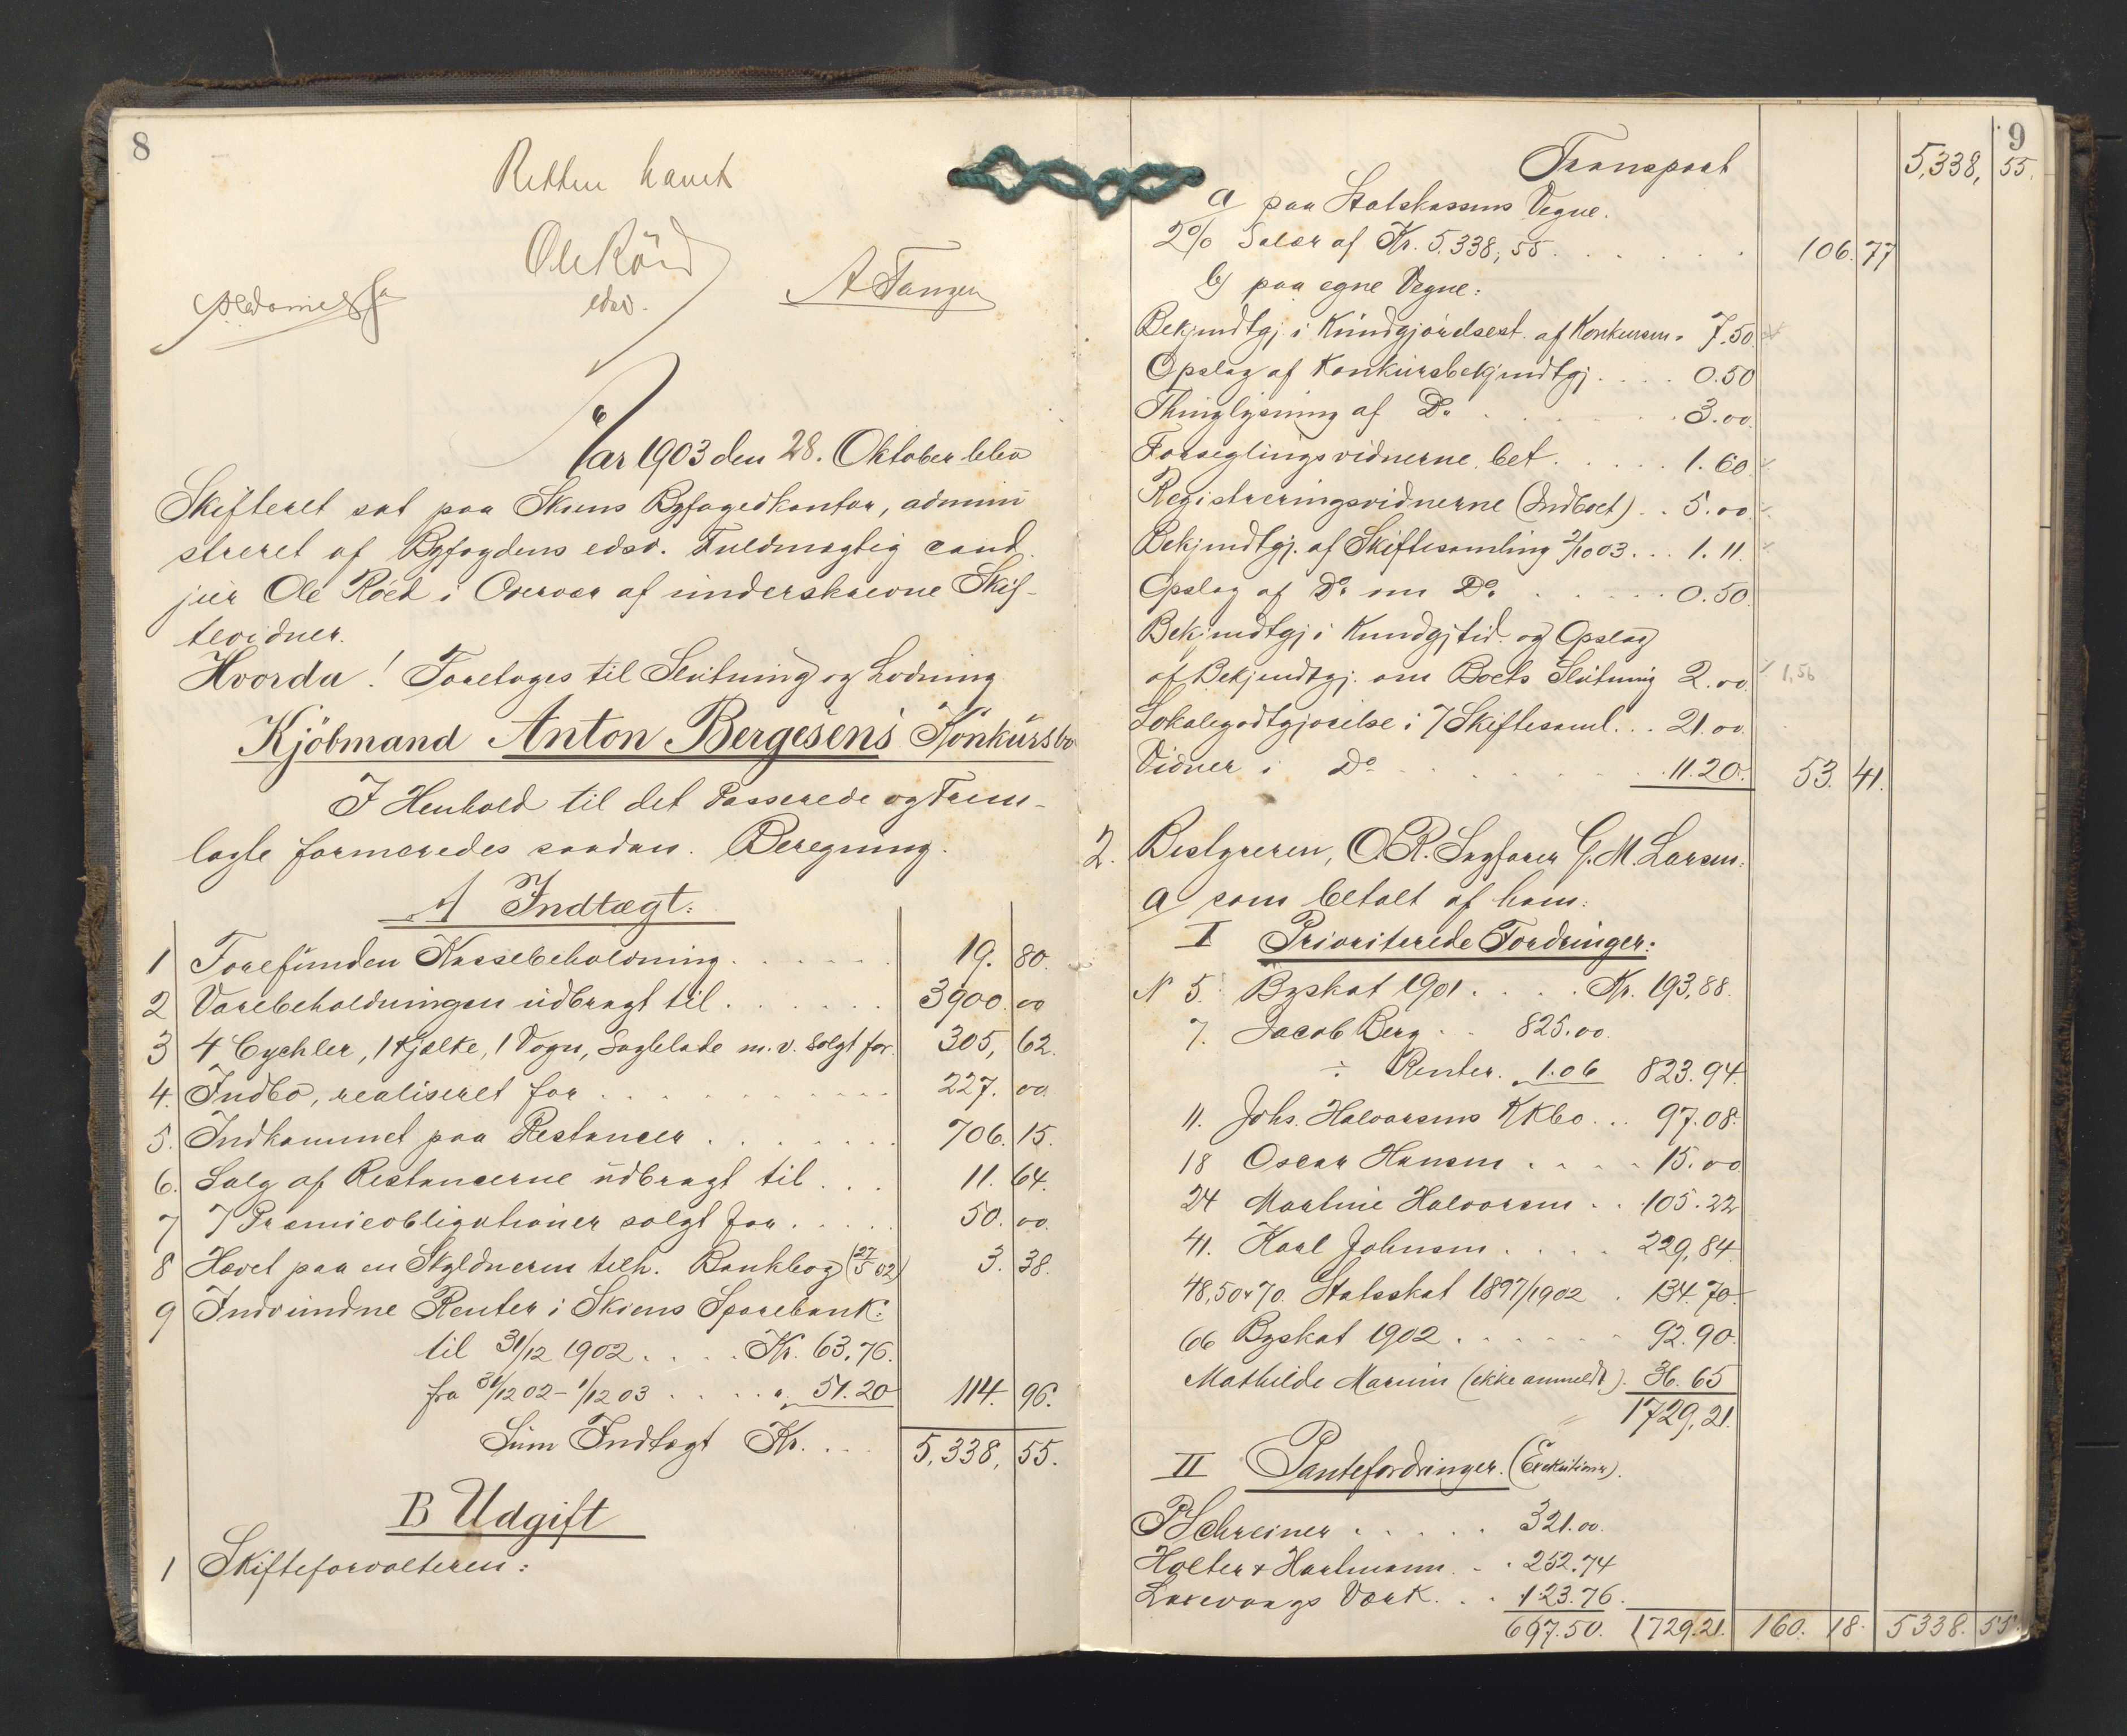 8
Retten hævet
Ole Röed
edsv.
A Tanzen
Aar 1903 den 28. Oktober blev
Skifteret sat paa Skiens Byfogedkontor, admini
streret af Byfogdens edsv. Fuldmægtig cand.
jur Ole Röed i Overvær af underskrevne Skif-
tevidner.
Hvorda! Foretoges til Slutning og Lodning
Kjöbmand Anton Bergesens Konkursbo
I Henhold til det Passerede og Frem-
lagte formeredes saadan. Beregning.
A Indtægt:
1 Forefunden Kassebeholdning 19. 80.
2 Varebeholdningen udbragt til 3900. 00
3 4 Cychler, 1 Kjælke, 1 Vogn, Sagblade m.v. solgt for 305, 62.
4. Indbo, realiseret for 227. 00.
5. Indkommet paa Restancer 706. 15.
6. Salg af Restancerne udbragt til 11. 64.
7 7 Præmieobligationer solgt for 50. 00.
8 Hævet paa en Skyldneren tilh. Bankbog (27/5 02) 3. 38.
9 Indvundne Renter i Skiens Sparebank:
til 31/12 1902 Kr. 63.76.
fra 31/12 02 - 1/12 03 " 51.20 114. 96.
Sum Indtægt Kr. 5,338, 55.
B Udgift
1 Skifteforvalteren:
9
Transport 5,338, 55.
a paa Statskassens Vegne.
2% Salær af Kr. 5.338,55 106. 77
b) paa egne Vegne:
Bekjendtgj. i Kundgjørelsest. af Konkursen 7.50
Opslag af Konkursbekjendtgj 0.50
Thinglysning af Do 3.00.
Forseglingsvidnerne bet. 1.60
Registreringsvidnerne (Indboet) 5.00
Bekjendtgj. af Skiftesamling 2/10 03 1.11.
Opslag af Do om Do 0.50.
Bekjendtgj i Kundgjtid. og Opslag
af Bekjendtgj. om Boets Slutning 2.00. 1,56
Lokalegodtgjørelse i 7 Skiftesaml. 21.00.
Vidner i Do 11.20. 53. 41.
2. Bestyreren, O.R. Sagfører G. M. Larsen:
a som betalt af ham:
I Prioriterede Fordringer:
N 5. Byskat 1901 Kr. 193,88.
7. Jacob Berg 825.00
÷ Renter. 1.06 823.94.
11. Johs. Halvorsens KKbo 97.08.
18 Oscar Hansen 15.00
24 Martine Halvorsen 105.22
41. Karl Johnsen 229,84
48,50 & 70. Statsskat 1897/1902 134.70.
66 Byskat 1902 92.90.
Mathilde (ikke anmeldt). 36.65
1729,21.
II Pantefordringer. (Exekutioner).
P Schreiner 321.00.
Holter & Hartmann 252.74
Laxevaags Værk 123.76.
697.50. 1729.21. 160. 18. 5338. 55.